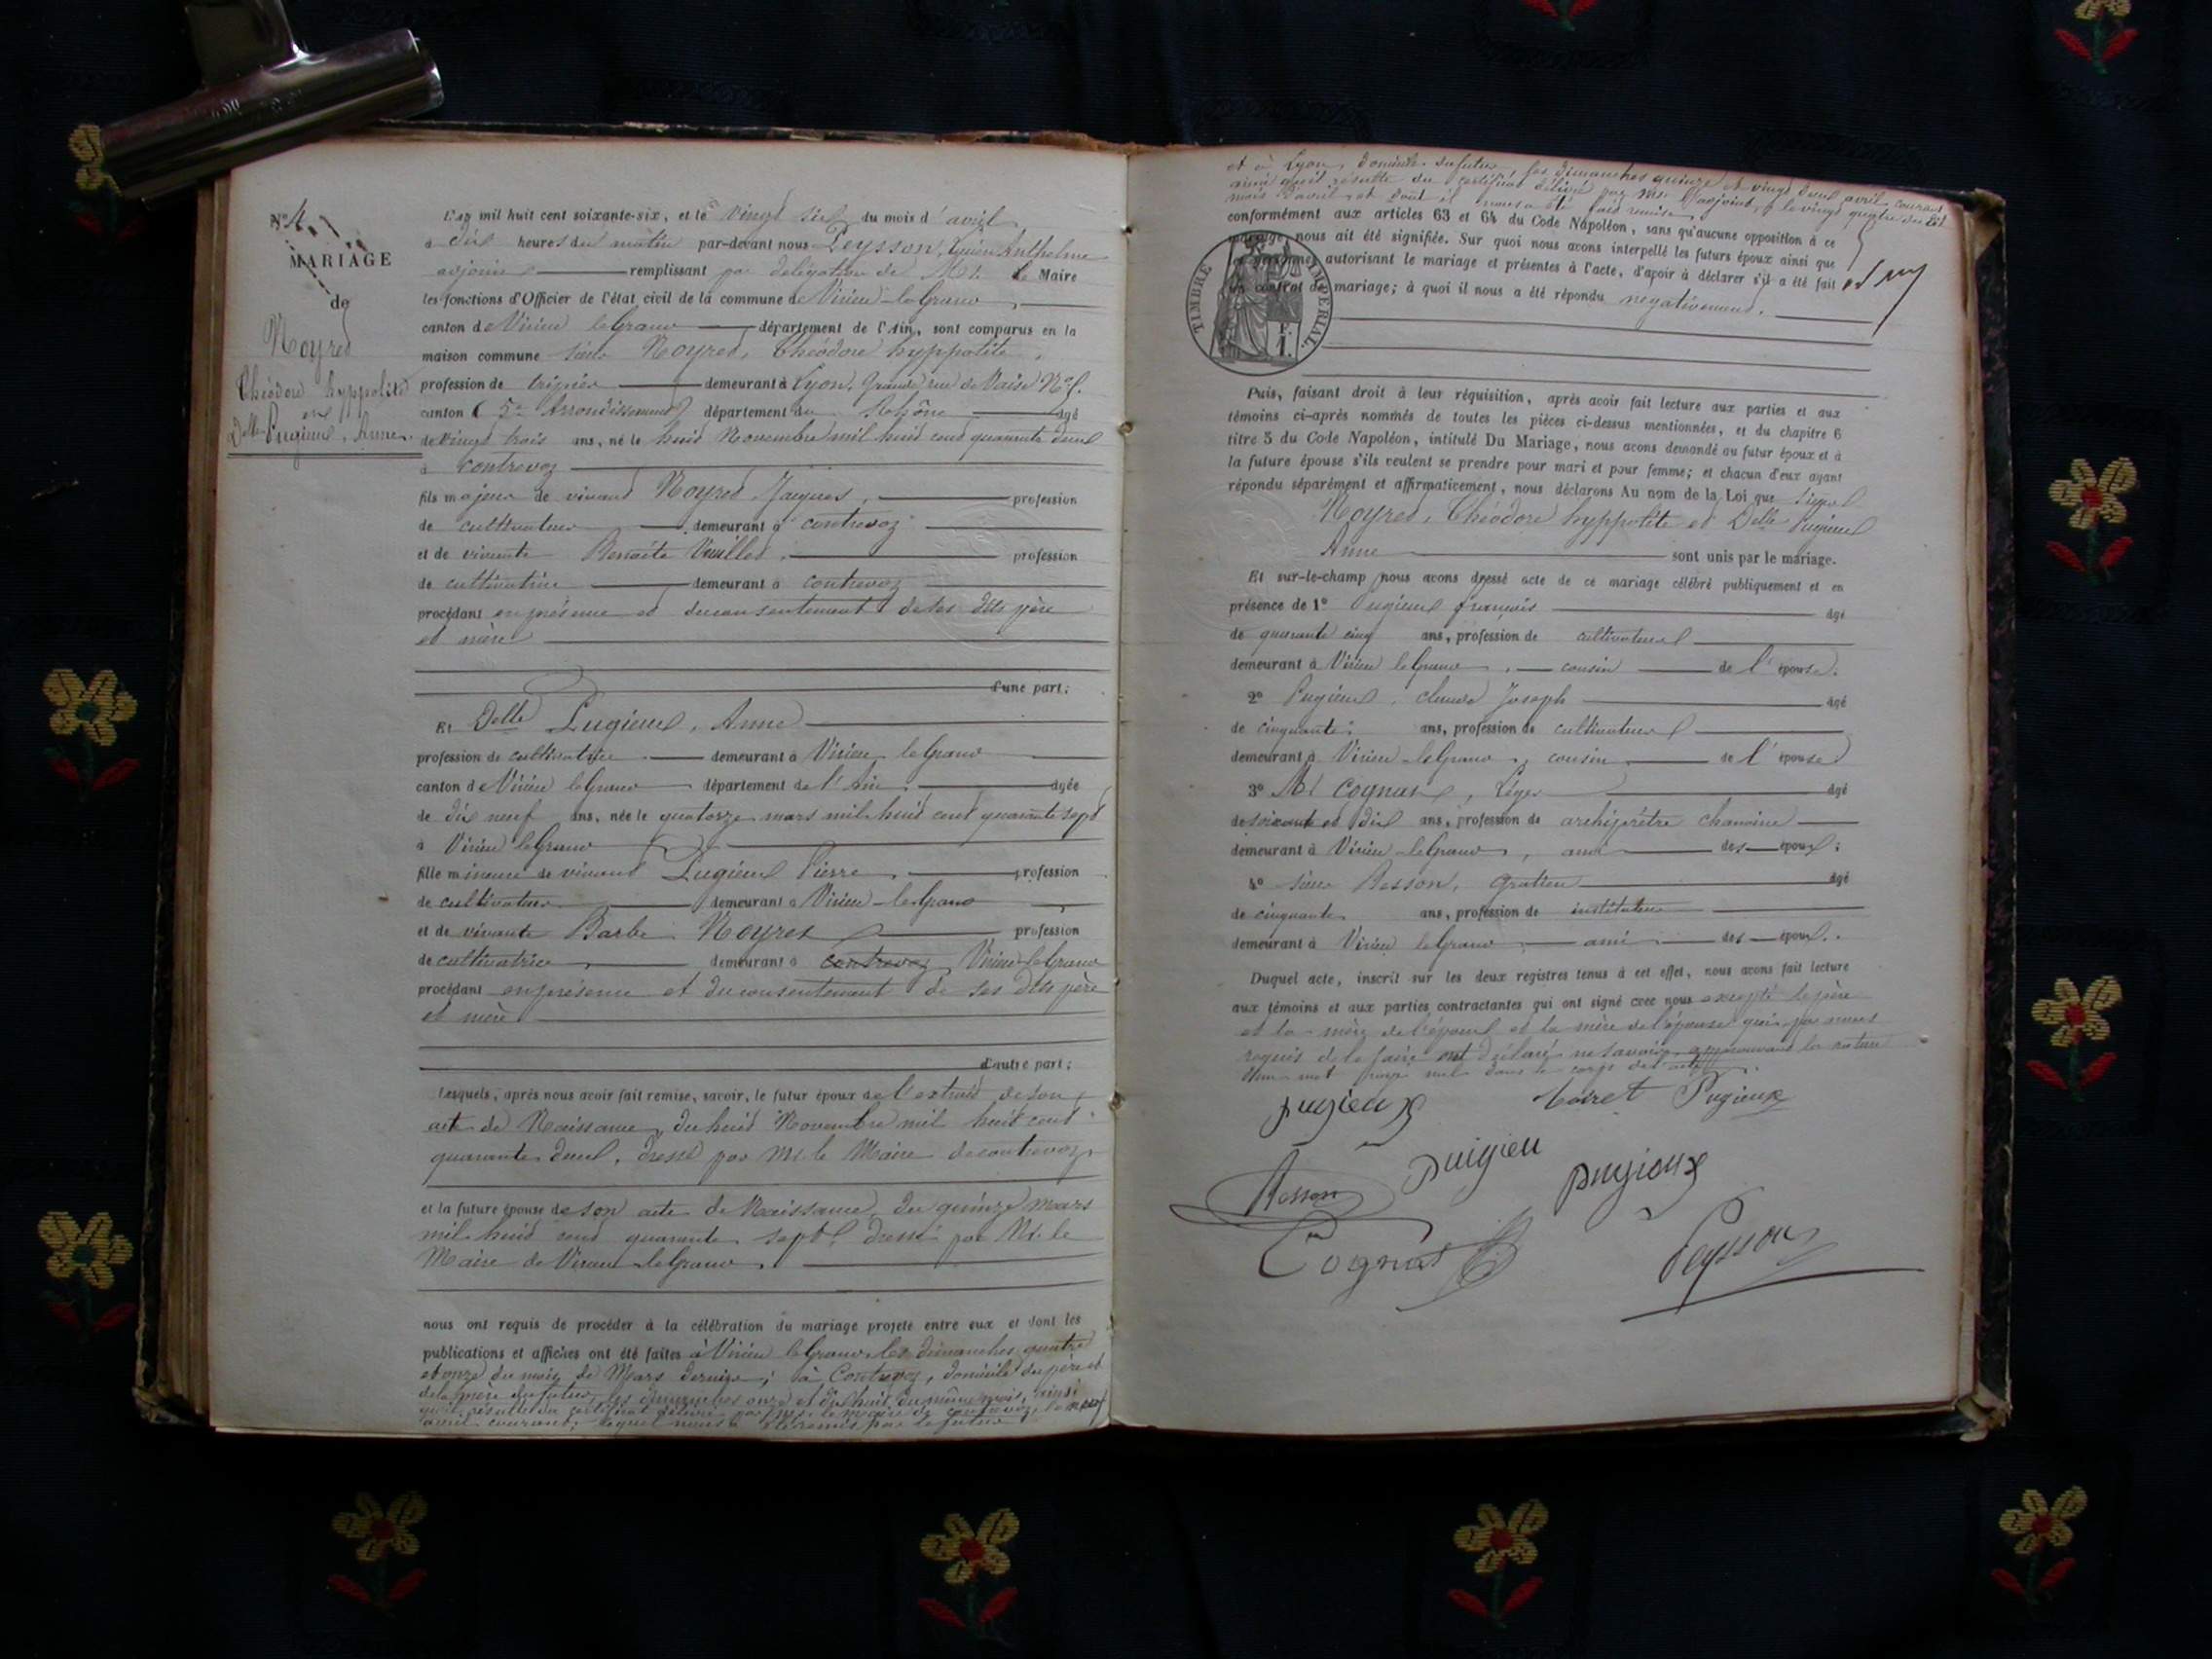 N° 4
MARIAGE
de
Noyret
Théodore hyppolite
et
Delle Pugieux, Anne
L'an mil huit cent soixante-six, et le vingt six du mois d'avril
à dix heures du matin par-devant nous Peysson, Anthelme
adjoint remplissant par délégation de Mr. le Maire
les fonctions d'Officier de l'état civil de la commune de Virieu-le-Grand,
canton de Virieu le Grand département de l'Ain, sont comparus en la
maison commune sieur Noyret, Théodore hyppolite,
profession de demeurant à Lyon, Grande rue de Vaise N°
canton (5e Arrondissement) département du Rhône âgé
de vingt trois ans, né le huit Novembre mil huit cent quarante deux
à Contrevoz
fils majeur de vivant Noyret, Jacques, profession
de cultivateur demeurant à contrevoz
et de vivante Benoite Vuillet, profession
de cultivatrice demeurant à contrevoz
procédant en présence et du consentement de ses dits père
et mère
d'une part;
Et Delle Pugieux, Anne
profession de cultivatrice demeurant à Virieu le Grand
canton de Virieu le Grand département de l'Ain, âgée
de dix neuf ans, née le quatorze mars mil huit cent quarante sept
à Virieu le Grand
fille mineure de vivant Pugieux Pierre, profession
de cultivateur demeurant à Virieu-le-Grand
et de vivante Barbe Noyret profession
de cultivatrice demeurant à contrevoz, Virieu le Grand
procédant en présence et du consentement de ses dits père
et mère
d'autre part;
Lesquels, après nous avoir fait remise, savoir, le futur époux de l'extrait de son
acte de Naissance, du huit Novembre mil huit cent
quarante deux, dressé par Mr. le Maire de contrevoz,
et la future épouse de son acte de Naissance, du quinze mars
mil huit cent quarante sept, dressé par Mr. le
Maire de Virieu-le-Grand,
nous ont requis de procéder à la célébration du mariage projeté entre eux et dont les
publications et affiches ont été faites à Virieu le Grand, les dimanches quatre
et onze du mois de Mars dernier; à Contrevoz, domicile du père et
de la mère du futur, les dimanches onze et dix huit du même mois, ainsi
qu'il résulte du certificat délivré par Mr. le maire de contrevoz, le
avril courant, lequel nous a été remis par le futur
et à Lyon, domicile du futur, les dimanches quinze et vingt deux avril courant
ainsi qu'il résulte du certificat délivré par Mr. l'adjoint, le vingt quatre du dit
mois d'avril et dont il nous a été fait remise,
conformément aux articles 63 et 64 du Code Napoléon, sans qu'aucune opposition à ce
mariage nous ait été signifiée. Sur quoi nous avons interpellé les futurs époux ainsi que
les personnes autorisant le mariage et présentes à l'acte, d'avoir à déclarer s'il a été fait
un contrat de mariage; à quoi il nous a été répondu négativement.
TIMBRE IMPÉRIAL
F.
1.
Puis, faisant droit à leur réquisition, après avoir fait lecture aux parties et aux
témoins ci-après nommés de toutes les pièces ci-dessus mentionnées, et du chapitre 6
titre 5 du Code Napoléon, intitulé Du Mariage, nous avons demandé au futur époux et à
la future épouse s'ils veulent se prendre pour mari et pour femme; et chacun d'eux ayant
répondu séparément et affirmativement, nous déclarons Au nom de la Loi que sieur
Noyret, Théodore hyppolite et Delle Pugieux
Anne sont unis par le mariage.
Et sur-le-champ nous avons dressé acte de ce mariage célébré publiquement et en
présence de 1° Pugieux françois âgé
de quarante cinq ans, profession de cultivateur
demeurant à Virieu le Grand, cousin de l'épouse.
2° Pugieux, claude Joseph âgé
de cinquante ans, profession de cultivateur
demeurant à Virieu-le-Grand, cousin de l'épouse
3° Mr Cognat, Léger âgé
de soixante et dix ans, profession de archiprêtre chanoine
demeurant à Virieu-le-Grand, ami des époux;
4° sieur Besson, Gratien âgé
de cinquante ans, profession de instituteur
demeurant à Virieu le Grand, ami des époux.
Duquel acte, inscrit sur les deux registres tenus à cet effet, nous avons fait lecture
aux témoins et aux parties contractantes qui ont signé avec nous excepté le père
et la mère de l'époux et la mère de l'épouse qui par nous
requis de le faire ont déclaré ne savoir, approuvant la rature
d'un mot rayé nul dans le corps de l'acte.
pugieux Noiret Pugieux
Besson pugieu pugieux
Cognat Peysson